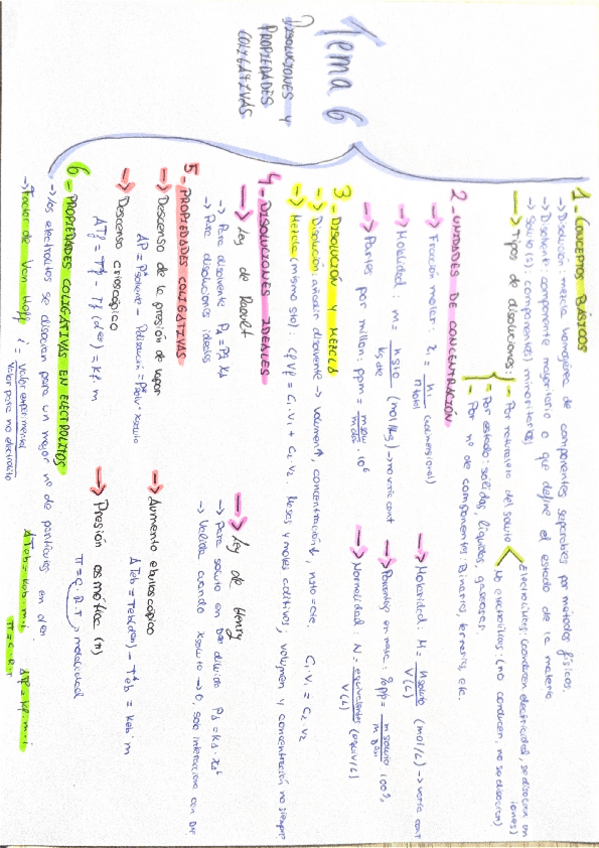 Tema 6
DISOLUCIONES Y
PROPIEDADES
COLIGATIVAS
1- CONCEPTOS BÁSICOS
-> Disolución: mezcla homogénea de componentes separables por métodos físicos.
-> Disolvente: componente mayoritario o que define el estado de la materia
-> Soluto (s): componente/s minoritario/s
-> Tipos de disoluciones:
- Por naturaleza del soluto
Electrolíticas: (conducen electricidad, se disocian en iones)
No electrolíticas: (no conducen, no se disocian)
- Por estado: sólidas, líquidas, gaseosas.
- Por nº de componentes: Binarias, ternarias, etc.
2_ UNIDADES DE CONCENTRACIÓN
-> Fracción molar: xi = ni / n total (adimensional)
-> Molaridad: M = n soluto / V(L) (mol/L) -> varía con T
-> Molalidad: m = n sto / kg dte (mol/kg) -> no varía con t
-> Porcentaje en masa: %pp = m soluto / m dson 100%
-> Partes por millón: ppm = m soluto / m dson · 10^6
-> Normalidad: N = equivalentes / V(L) (equiv/L)
3 - DISOLUCIÓN Y MEZCLA
-> Disolución: añadir disolvente -> volumen ↑, concentración ↓, n sto = cte C1 · V1 = C2 V2
-> Mezcla (mismo sto): Cf VF = C1 · V1 + C2 V2 Masas y moles aditivos; volumen y concentración no siempre
4 - DISOLUCIONES IDEALES
-> Ley de Raoult
-> Para disolvente
-> Para disoluciones ideales
-> Ley de Henry
-> Para soluto en dis diluida
-> Válida cuando x soluto -> 0, solo interacciona con
5 - PROPIEDADES COLIGATIVAS
-> Descenso de la presión de vapor
-> Aumento ebulloscópico
ΔTeb = Teb(dson) - Teb = keb · m
-> Descenso crioscópico
ΔTf = Tf - Tf (dson) = kf · m
-> Presión osmótica (π)
π = C · R · T molaridad
6 - PROPIEDADES COLIGATIVAS EN ELECTROLITOS
-> Los electrolitos se disocian para un mayor nº de partículas en dson
-> Factor de Van Hoff i = valor experimental / Valor para no electrolito
ΔTeb = keb · m · i
ΔTf = kf · m · i
π = C · R · T